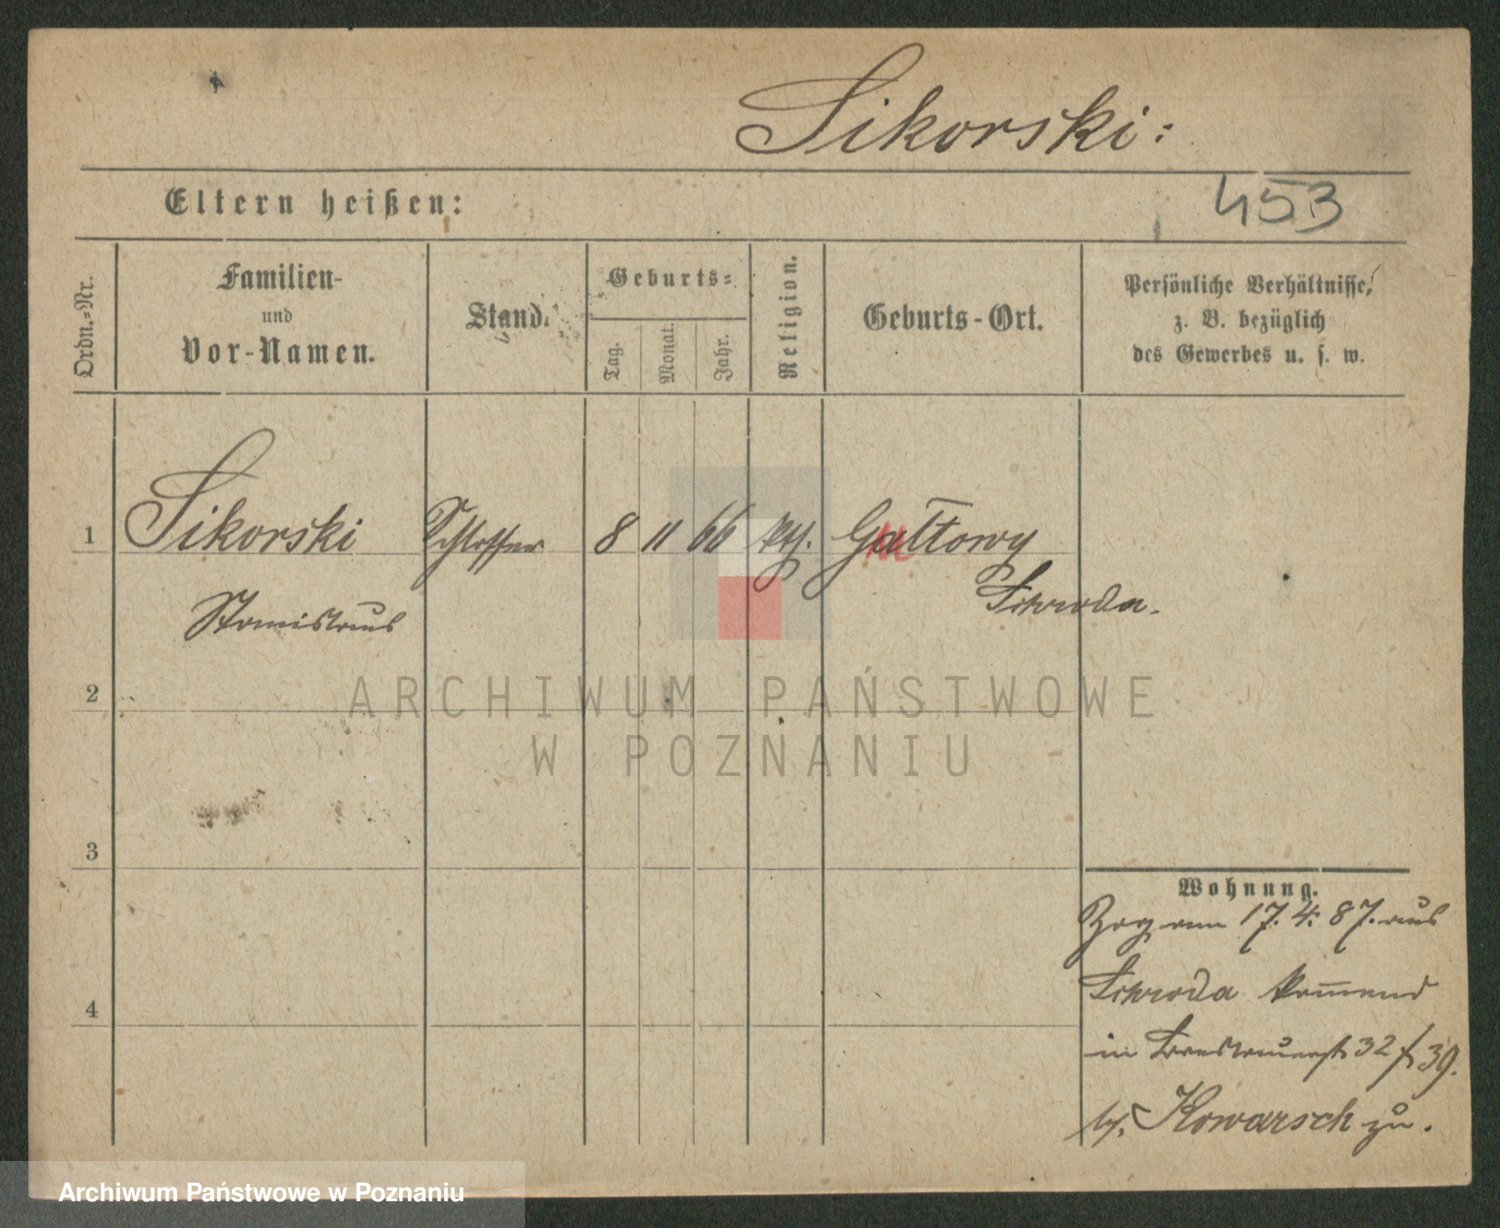 Sikorski:
Eltern heißen:
453
Ordn.=Nr.
Familien-
und
Vor-Namen.
Stand.
Geburts=
Tag.
Monat.
Jahr.
Religion.
Geburts-Ort.
Persönliche Verhältnisse,
z. B. bezüglich
des Gewerbes u. s. w.
1 Sikorski Schlosser 8 11 66 kth. Gułtowy
Stanislaus
Schroda.
2
ARCHIWUM PAŃSTWOWE
W POZNANIU
3
Wohnung.
Zog am 17. 4. 87. aus
Schroda kommend
4
in Breslauerst 32 f 39.
b/. Kowarsch zu.
Archiwum Państwowe w Poznaniu